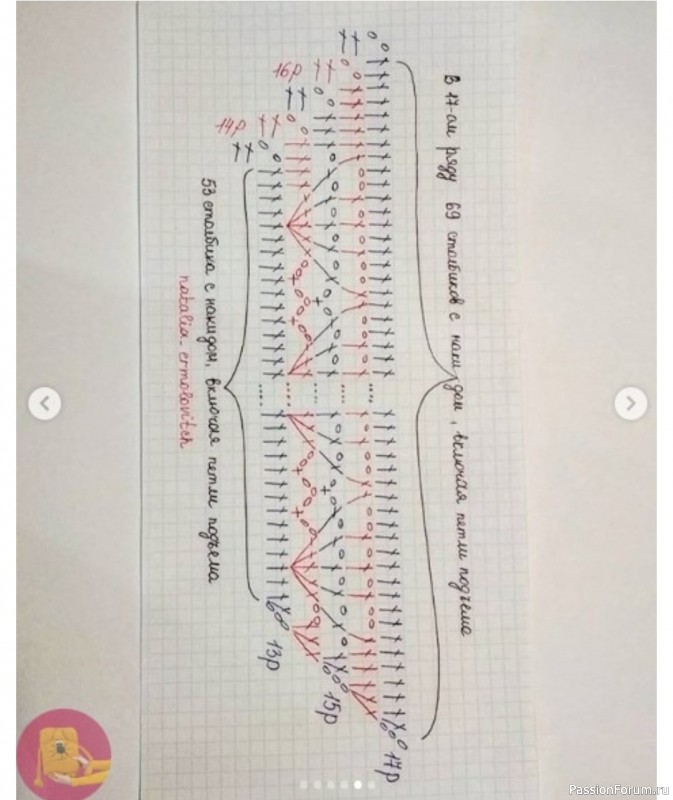 В 17-ом ряду 69 столбиков с накидом, включая петли подъема
16р
14р
53 столбика с накидом, включая петли подъема
natalia_ermolovitch
13р
15р
17р
PassionForum.ru